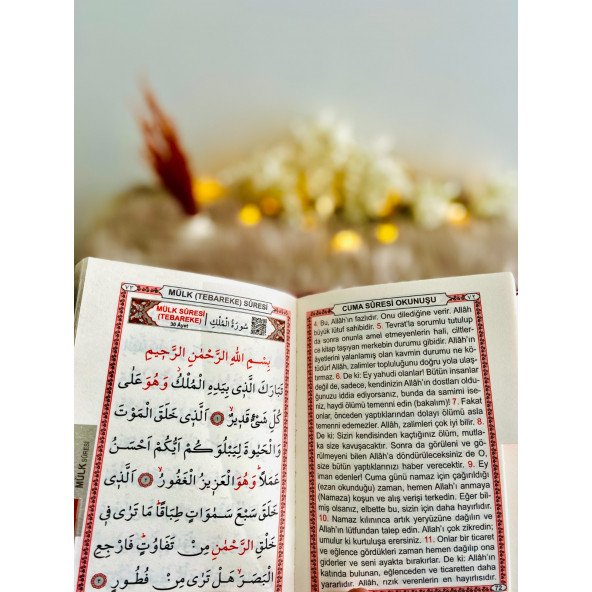 ٧٣
MÜLK (TEBAREKE) SÛRESİ
MÜLK SÛRESİ
(TEBAREKE)
30 Âyet
سُورَةُ الْمُلْكِ
بِسْمِ اللّٰهِ الرَّحْمٰنِ الرَّح۪يمِ
تَبَارَكَ الَّذ۪ي بِيَدِهِ الْمُلْكُ وَهُوَ عَلٰى
كُلِّ شَيْءٍ قَد۪يرٌ ١ اَلَّذ۪ي خَلَقَ الْمَوْتَ
وَالْحَيٰوةَ لِيَبْلُوَكُمْ اَيُّكُمْ اَحْسَنُ
عَمَلًا وَهُوَ الْعَز۪يزُ الْغَفُورُ ٢ اَلَّذ۪ي
خَلَقَ سَبْعَ سَمٰوَاتٍ طِبَاقًا مَا تَرٰى ف۪ي
خَلْقِ الرَّحْمٰنِ مِنْ تَفَاوُتٍ فَارْجِعِ
الْبَصَرَ هَلْ تَرٰى مِنْ فُطُورٍ ٣
MÜLK SÛRESİ
CUMA SÛRESİ OKUNUŞU
٧٢
4. Bu, Allâh'ın fazlıdır. Onu dilediğine verir. Allâh
büyük lütuf sahibidir. 5. Tevrat'la sorumlu tutulup
da sonra onunla amel etmeyenlerin hali, ciltler-
ce kitap taşıyan merkebin durumu gibidir. Allâh'ın
âyetlerini yalanlamış olan kavmin durumu ne kö-
tüdür! Allâh, zalimler topluluğunu doğru yola ulaştır-
maz. 6. De ki: Ey yahudi olanlar! Bütün insanlar
değil de, sadece, kendinizin Allâh'ın dostları oldu-
ğunuzu iddia ediyorsanız, bunda da samimi ise-
niz, haydi ölümü temenni edin (bakalım)! 7. Fakat
onlar, önceden yaptıklarından dolayı ölümü asla
temenni edemezler. Allâh, zalimleri çok iyi bilir. 8.
De ki: Sizin kendisinden kaçtığınız ölüm, mutla-
ka size kavuşacaktır. Sonra da görüleni ve gö-
rülmeyeni bilen Allâh'a döndürüleceksiniz de O,
size bütün yaptıklarınızı haber verecektir. 9. Ey
iman edenler! Cuma günü namaz için çağırıldığı
(ezan okunduğu) zaman, hemen Allâh'ı anmaya
(Namaza) koşun ve alış verişi terkedin. Eğer bil-
miş olsanız, elbette bu, sizin için daha hayırlıdır.
10. Namaz kılınınca artık yeryüzüne dağılın ve
Allâh'ın lütfundan talep edin. Allâh'ı çok zikredin;
umulur ki kurtuluşa erersiniz. 11. Onlar bir ticaret
ve eğlence gördükleri zaman hemen dağılıp ona
giderler ve seni ayakta bırakırlar. De ki: Allâh'ın
katında bulunan, eğlenceden ve ticaretten daha
yararlıdır. Allâh, rızık verenlerin en hayırlısıdır.
72